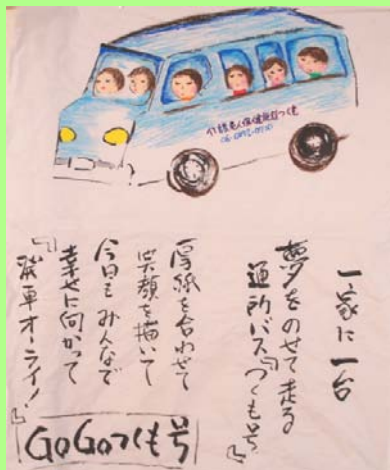 介護老人保健施設つくも
一家に一台
夢をのせて走る
通所バス『つくも号』
厚紙を合わせて
笑顔を描いて
今日もみんなで
幸せに向かって
『発車オーライ！』
GoGoつくも号